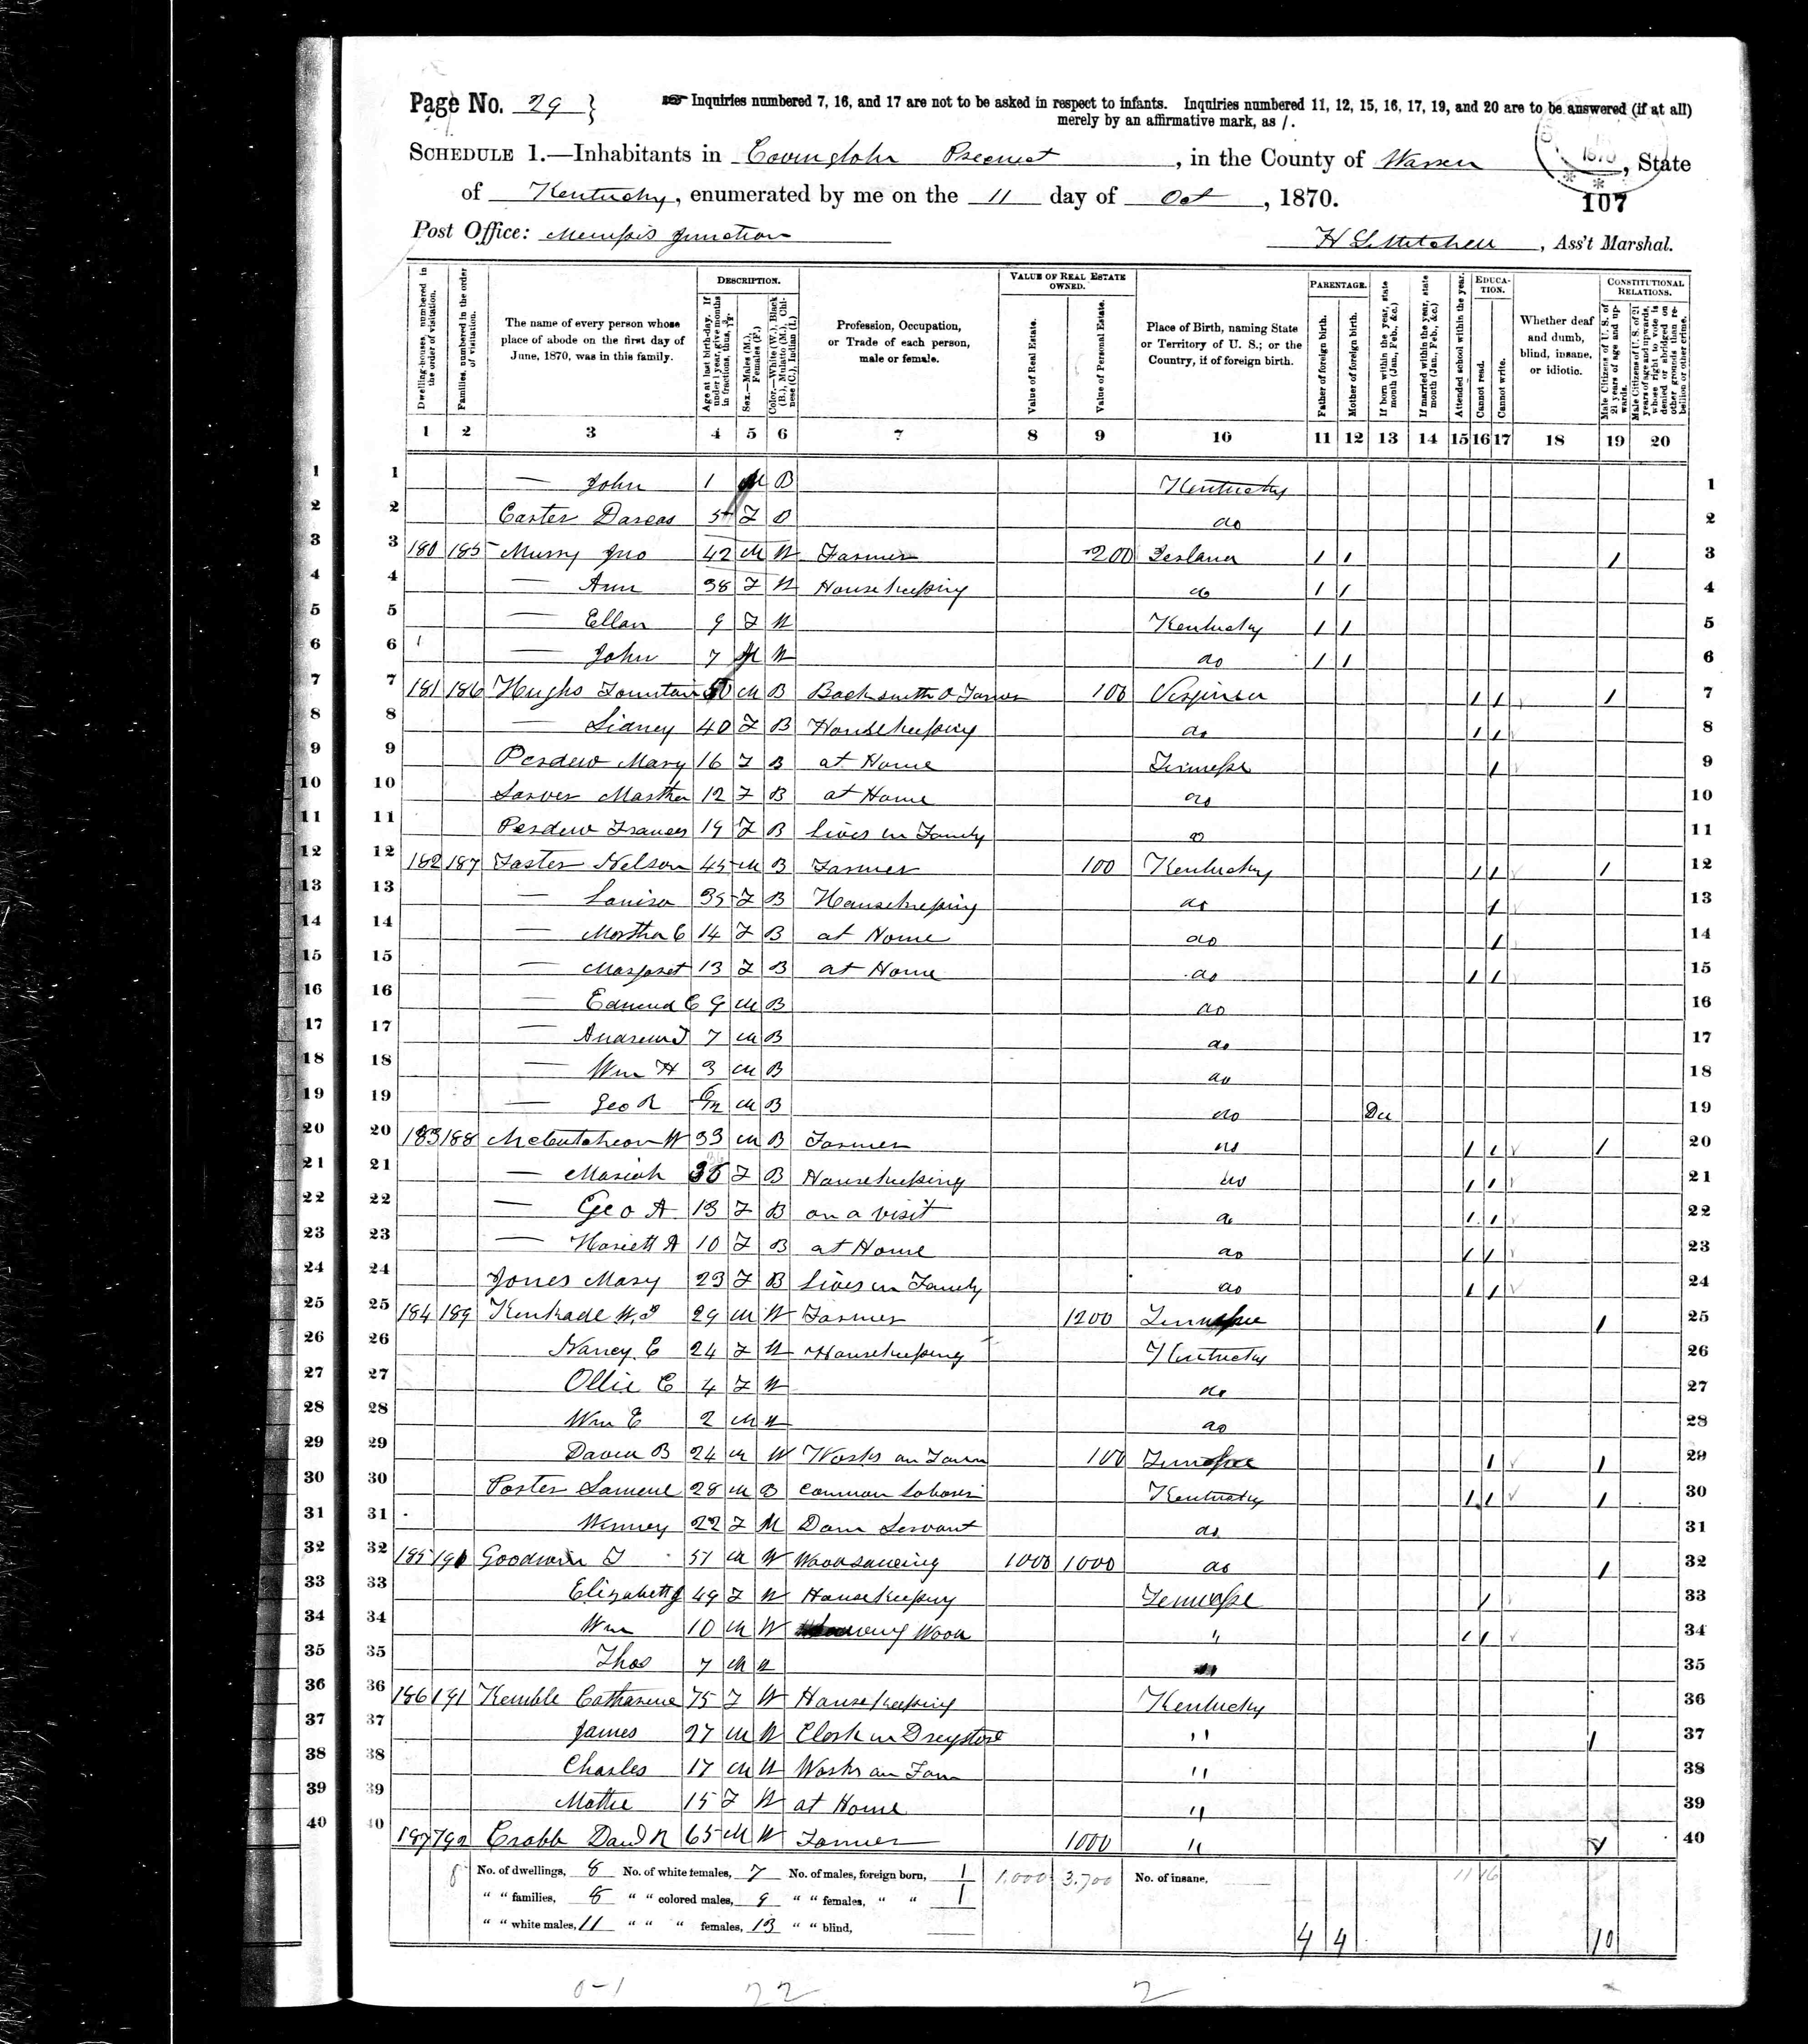 Page No. 29 }
Inquiries numbered 7, 16, and 17 are not to be asked in respect to infants. Inquiries numbered 11, 12, 15, 16, 17, 19, and 20 are to be answered (if at all)
merely by an affirmative mark, as /.
SCHEDULE 1.—Inhabitants in Covington Precinct, in the County of Warren, State
1870
of Kentucky, enumerated by me on the 11 day of Oct, 1870.
107
Post Office: Memphis Junction
H Mitchell, Ass't Marshal.
Dwelling-houses, numbered in the order of visitation.
Families, numbered in the order of visitation.
The name of every person whose place of abode on the first day of June, 1870, was in this family.
DESCRIPTION.
Age at last birth-day. If under 1 year, give months in fractions, thus, 3/12.
Sex.—Males (M.), Females (F.)
Color.—White (W.), Black (B.), Mulatto (M.), Chinese (C.), Indian (I.)
Profession, Occupation, or Trade of each person, male or female.
VALUE OF REAL ESTATE OWNED.
Value of Real Estate.
Value of Personal Estate.
Place of Birth, naming State or Territory of U. S.; or the Country, if of foreign birth.
PARENTAGE.
Father of foreign birth.
Mother of foreign birth.
If born within the year, state month (Jan., Feb., &c.)
If married within the year, state month (Jan., Feb., &c.)
Attended school within the year.
EDUCATION.
Cannot read.
Cannot write.
Whether deaf and dumb, blind, insane, or idiotic.
CONSTITUTIONAL RELATIONS.
Male Citizens of U. S. of 21 years of age and upwards.
Male Citizens of U. S. of 21 years of age and upwards, whose right to vote is denied or abridged on other grounds than rebellion or other crime.
1 2 3 4 5 6 7 8 9 10 11 12 13 14 15 16 17 18 19 20
1 1 — John 1 M B Kentucky 1
2 2 Carter Darcas F B do 2
3 3 180 185 Murry Jno 42 M W Farmer 200 Ireland / / / 3
4 4 — Ann 38 F W Housekeeping do / / 4
5 5 — Ellan 9 F W Kentucky / / 5
6 6 — John 7 M W do / / 6
7 7 181 186 Hughs Fountain M B Backsmith & Farmer 100 Virginia / / / 7
8 8 — Sidney 40 F B Housekeeping do / / 8
9 9 Perdew Mary 16 F B at Home Tennessee / 9
10 10 Martha 12 F B at Home do 10
11 11 Perdew Frances 19 F B Lives in Family do 11
12 12 182 187 Foster Nelson 45 M B Farmer 100 Kentucky / / / 12
13 13 — Louisa 35 F B Housekeeping do / 13
14 14 — Martha E 14 F B at Home do / 14
15 15 — Margaret 13 F B at Home do / / 15
16 16 — Edmund C 9 M B do 16
17 17 — Andrew J 7 M B do 17
18 18 — Wm H 3 M B do 18
19 19 — Geo R 6/12 M B do Dec 19
20 20 183 188 McCutcheon W 33 M B Farmer do / / / 20
21 21 — Mariah F B Housekeeping do / / 21
22 22 — Geo A 13 F B on a visit do / / 22
23 23 — Hariett A 10 F B at Home do / / 23
24 24 Jones Mary 23 F B Lives in Family do / / 24
25 25 184 189 W. 29 M W Farmer 1200 Tennessee / 25
26 26 Nancy E 24 F W Housekeeping Kentucky 26
27 27 Ollie E 4 F W do 27
28 28 Wm E 2 M W do 28
29 29 David B 24 M W Works on Farm 100 Tennessee / / 29
30 30 Porter Samuel 28 M B Common Laborer Kentucky / / / 30
31 31 Winney 22 F M Dom Servant do 31
32 32 185 190 Goodwin 51 M W Woodsawing 1000 1000 do / 32
33 33 Elizabeth J 49 F W Housekeeping Tennessee / 33
34 34 Wm 10 M W Wood " / / 34
35 35 Thos 7 M W 35
36 36 186 191 Kemble Catharine 75 F W Housekeeping Kentucky 36
37 37 James 27 M W Clerk in Drugstore " / 37
38 38 Charles 17 M W Works on Farm " 38
39 39 Mattie 15 F W at Home " 39
40 40 187 192 Crabb David R 65 M W Farmer 1000 " / 40
8 No. of dwellings, 8 No. of white females, 7 No. of males, foreign born, 1 1,000 3.700 No. of insane, 11 16
" " families, 8 " " colored males, 9 " " females, " " 1
" " white males, 11 " " " females, 13 " " blind, 4 4 10
0-1 22 2